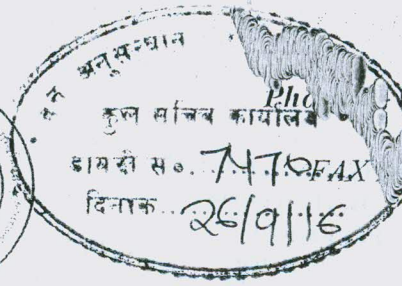 वन अनुसन्धान
कुल सचिव कार्यालय
डायरी स०. 7470 FAX
दिनांक. 26/9/16